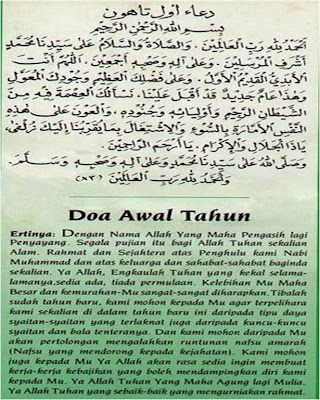 دعاء اول تاهون
بسم الله الرحمن الرحيم
الحمد لله رب العالمين. والصلاة والسلام على سيدنا محمد
أشرف المرسلين. وعلى آله وصحبه أجمعين. اللهم أنت
الأبدي القديم الأول. وعلى فضلك العظيم وجودك المعول
وهذا عام جديد قد أقبل علينا. نسألك العصمة فيه من
الشيطان الرجيم وأوليائه وجنوده. والعون على هذه
النفس الأمارة بالسوء والاشتغال بما يقربنا إليك زلفى
يا ذا الجلال والإكرام. يا أرحم الراحمين.
وصلى الله على سيدنا محمد وعلى آله وصحبه وسلم.
والحمد لله رب العالمين (×٣)
Doa Awal Tahun
Ertinya: Dengan Nama Allah Yang Maha Pengasih lagi
Penyayang. Segala pujian itu bagi Allah Tuhan sekalian
Alam. Rahmat dan Sejahtera atas Penghulu kami Nabi
Muhammad dan atas keluarga dan sahabat-sahabat baginda
sekalian. Ya Allah, Engkaulah Tuhan yang kekal selama-
lamanya,sedia ada, tiada permulaan. Kelebihan Mu Maha
Besar dan kemurahan-Mu sangat-sangat diharapkan. Tibalah
sudah tahun baru, kami mohon kepada Mu agar terpelihara
kami sekalian di dalam tahun baru ini daripada tipu daya
syaitan-syaitan yang terlaknat juga daripada kuncu-kuncu
syaitan dan bala tenteranya. Dan kami mohon daripada Mu
akan pertolongan mengalahkan runtunan nafsu amarah
(Nafsu yang mendorong kepada kejahatan). Kami mohon
juga kepada Mu Ya Allah akan rasa sedia ingin membuat
kerja-kerja kebajikan yang boleh mendampingkan diri kami
kepada Mu. Ya Allah Tuhan Yang Maha Agung lagi Mulia.
Ya Allah Tuhan yang sebaik-baik yang mengurniakan rahmat.